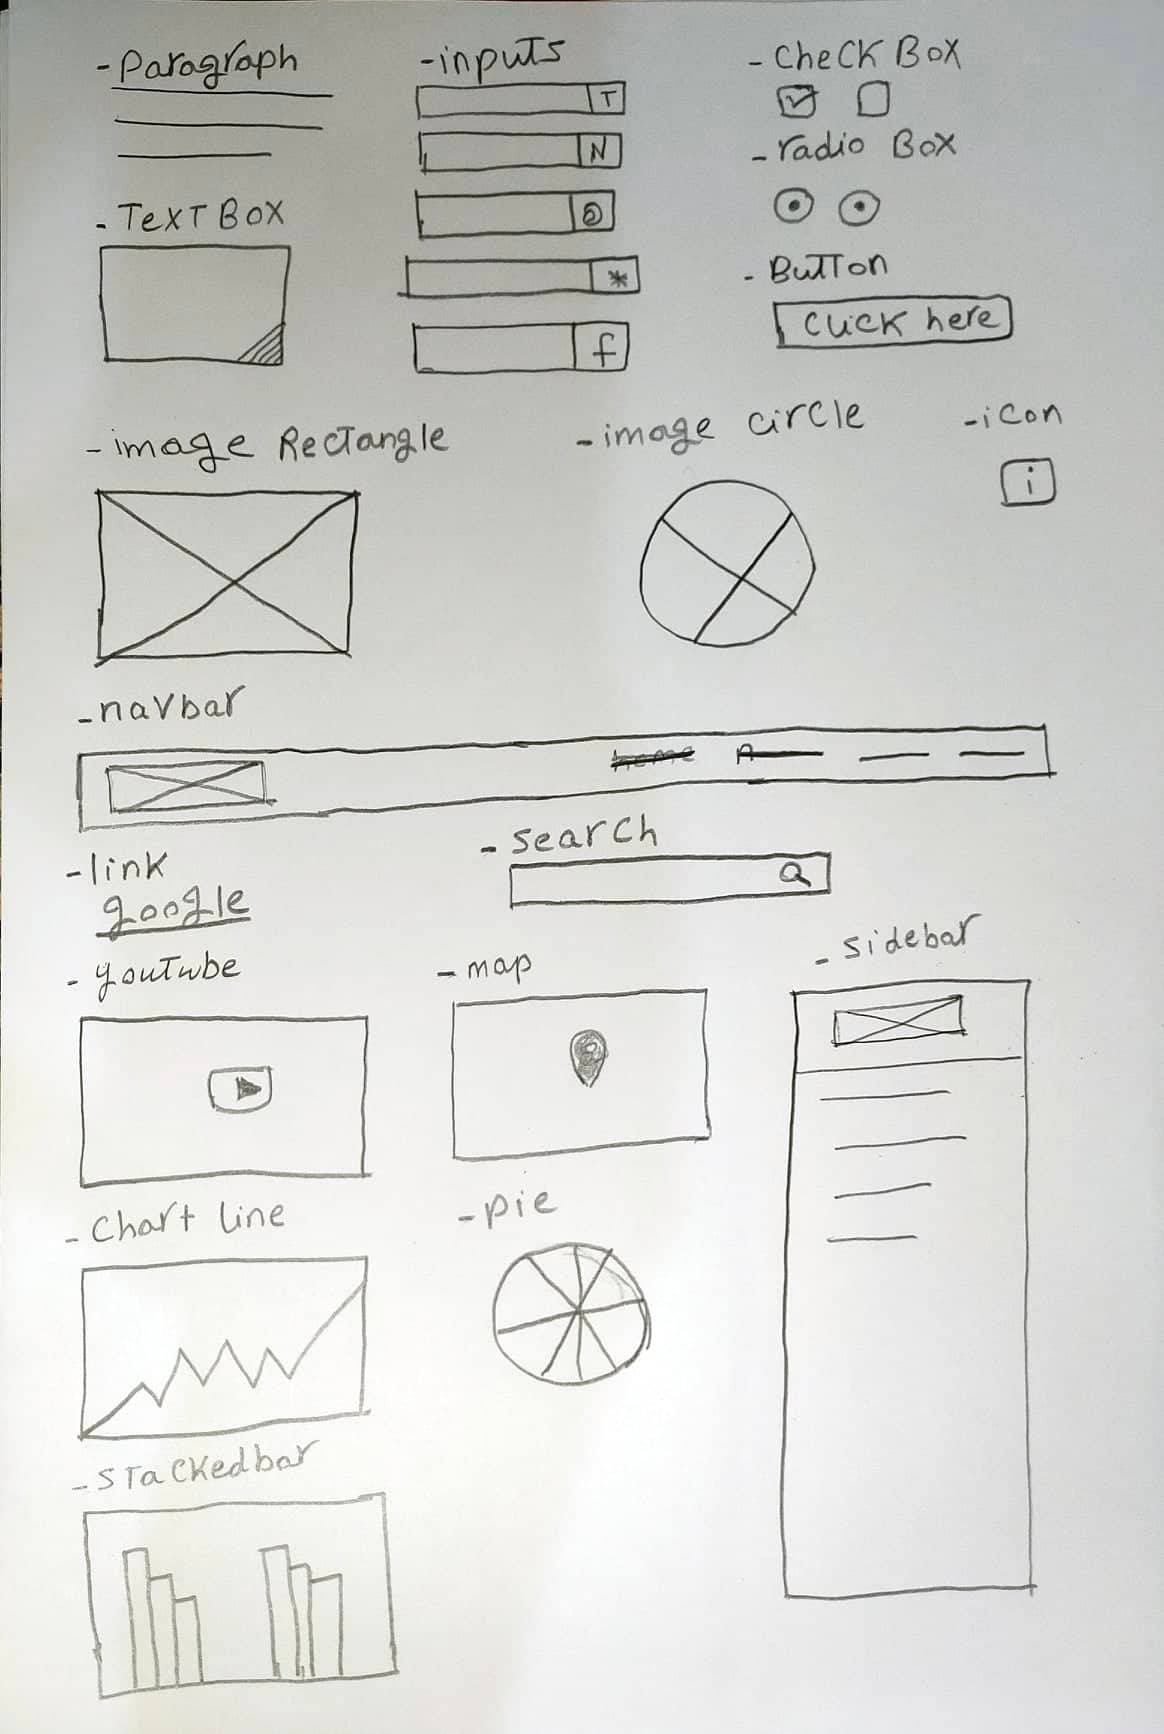 - Paragraph
- inputs
T
N
@
*
f
- CheCK Box
- radio Box
- TexT Box
- BuTTon
CLICK here
- image RecTangle
- image circle
- icon
i
- navbar
home
- link
google
- search
- youTube
- map
- sidebar
- Chart Line
- pie
- STaCkedbar